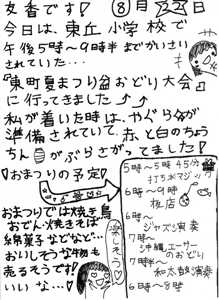 友香です♡ ⑧月22日
今日は、東丘小学校で
午後5時〜9時半までかいさい
されていた…
『東町夏まつり盆おどり大会』
に行ってきました
私が着いた時は、やぐらが
準備されていて、赤と白のちょう
ちんがぶらさがってました。
♡おまつりの予定♡
おまつりでは焼き鳥
おでん・焼きそば
綿菓子などなど…
おいしそうな物も
売るそうです!
いいな…♡
楽しそう♡
5時〜5時45分
打ち水マジック
6時〜9時
夜店
6時〜
ジャズン演奏
7時〜
沖縄エーサー
のおどり
7時半〜
和太鼓演奏
6時〜8時